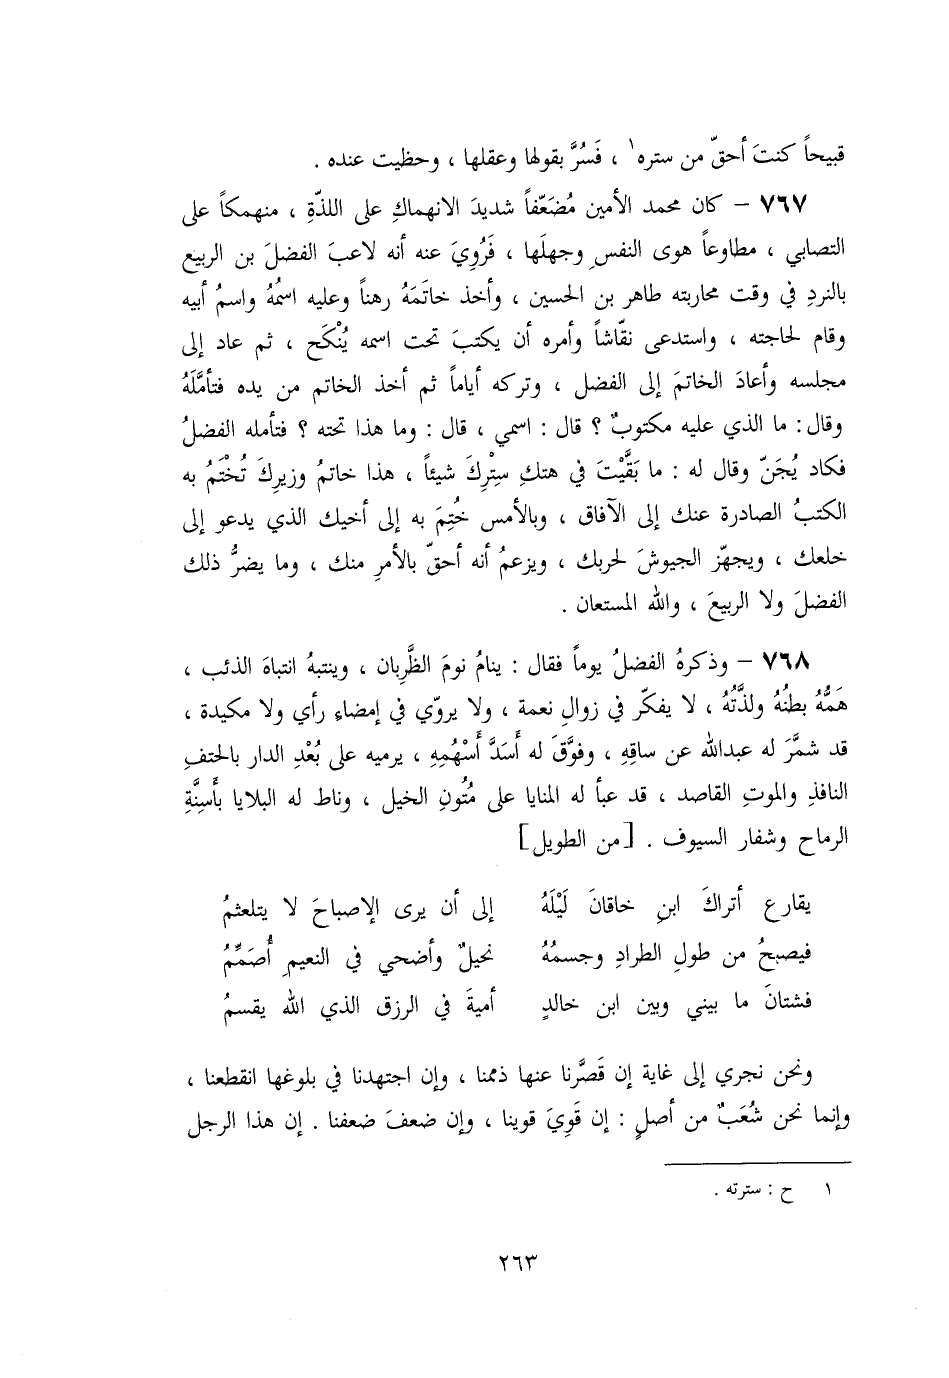 قبيحاً كنتَ أحقّ من ستره١ ، فَسُرَّ بقولها وعقلها ، وحظيت عنده .
٧٦٧ – كان محمد الأمين مُضَعّفاً شديدَ الانهماكِ على اللذّةِ ، منهمكاً على
التصابي ، مطاوعاً هوى النفسِ وجهلَها ، فَرُوِيَ عنه أنه لاعبَ الفضلَ بن الربيع
بالنردِ في وقت محاربته طاهر بن الحسين ، وأخذ خاتَمَهُ رهناً وعليه اسمُهُ واسمُ أبيه
وقام لحاجته ، واستدعى نقّاشاً وأمره أن يكتبَ تحت اسمه يُنْكَح ، ثم عاد إلى
مجلسه وأعادَ الخاتمَ إلى الفضل ، وتركه أياماً ثم أخذ الخاتم من يده فتأمَّلَهُ
وقال: ما الذي عليه مكتوبٌ ؟ قال : اسمي ، قال : وما هذا تحته ؟ فتأمله الفضلُ
فكاد يُجَنّ وقال له : ما بَقَّيْتَ في هتكِ سِتْرِكَ شيئاً ، هذا خاتمُ وزيرِكَ تُخْتَمُ به
الكتبُ الصادرة عنك إلى الآفاق ، وبالأمس خُتِمَ به إلى أخيك الذي يدعو إلى
خلعك ، ويجهّز الجيوشَ لحربك ، ويزعمُ أنه أحقّ بالأمرِ منك ، وما يضرُّ ذلك
الفضلَ ولا الربيعَ ، والله المستعان .
٧٦٨ – وذكرهُ الفضلُ يوماً فقال : ينامُ نومَ الظَّرِبان ، وينتبهُ انتباهَ الذئب ،
هَمُّهُ بطنُهُ ولذَّتُهُ ، لا يفكّر في زوالِ نعمة ، ولا يروّي في إمضاءِ رأي ولا مكيدة ،
قد شمَّرَ له عبدالله عن ساقِهِ ، وفوَّقَ له أَسَدَّ أَسْهُمِهِ ، يرميه على بُعْدِ الدار بالحتفِ
النافذِ والموتِ القاصد ، قد عبأ له المنايا على مُتُونِ الخيل ، وناط له البلايا بأَسِنَّةِ
الرماح وشفار السيوف . [من الطويل]
يقارع أتراكَ ابنِ خاقانَ لَيْلَهُ إلى أن يرى الإصباحَ لا يتلعثمُ
فيصبحُ من طولِ الطرادِ وجسمُهُ نحيلٌ وأضحي في النعيمِ أُصَمِّمُ
فشتانَ ما بيني وبين ابن خالدٍ أميةَ في الرزق الذي الله يقسمُ
ونحن نجري إلى غاية إن قَصَّرنا عنها ذممنا ، وإن اجتهدنا في بلوغها انقطعنا ،
وإنما نحن شُعَبٌ من أصلٍ : إن قَوِيَ قوينا ، وإن ضعفَ ضعفنا . إن هذا الرجل
١ ح : سترته .
٢٦٣